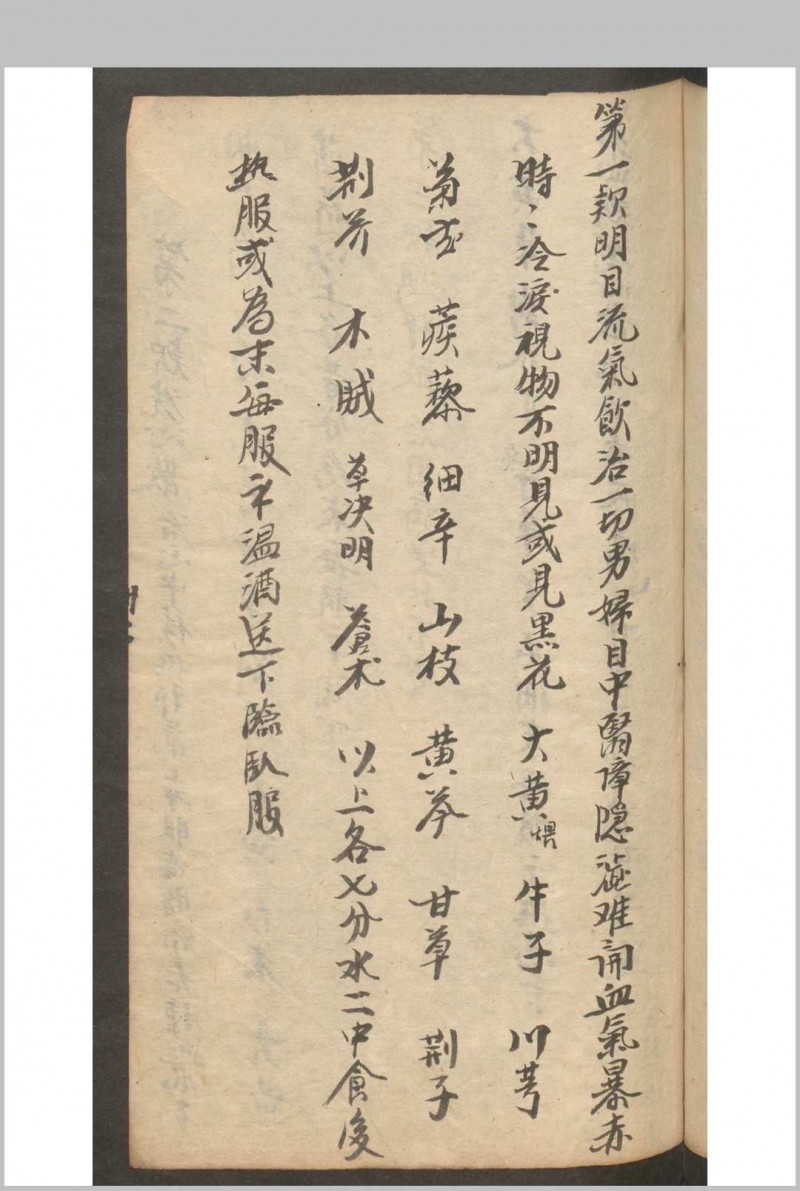 第一款明目流氣飲治一切男婦目中醫障隱澁难開血氣暴赤
時〻冷淚視物不明見或見黑花 大黄煨 牛子 川芎
菊花 蒺藜 细辛 山枝 黄芩 甘草 荆子
荆芥 木賊 草决明 蒼术 以上各七分水二中食後
热服或為末每服 温酒送下臨臥服